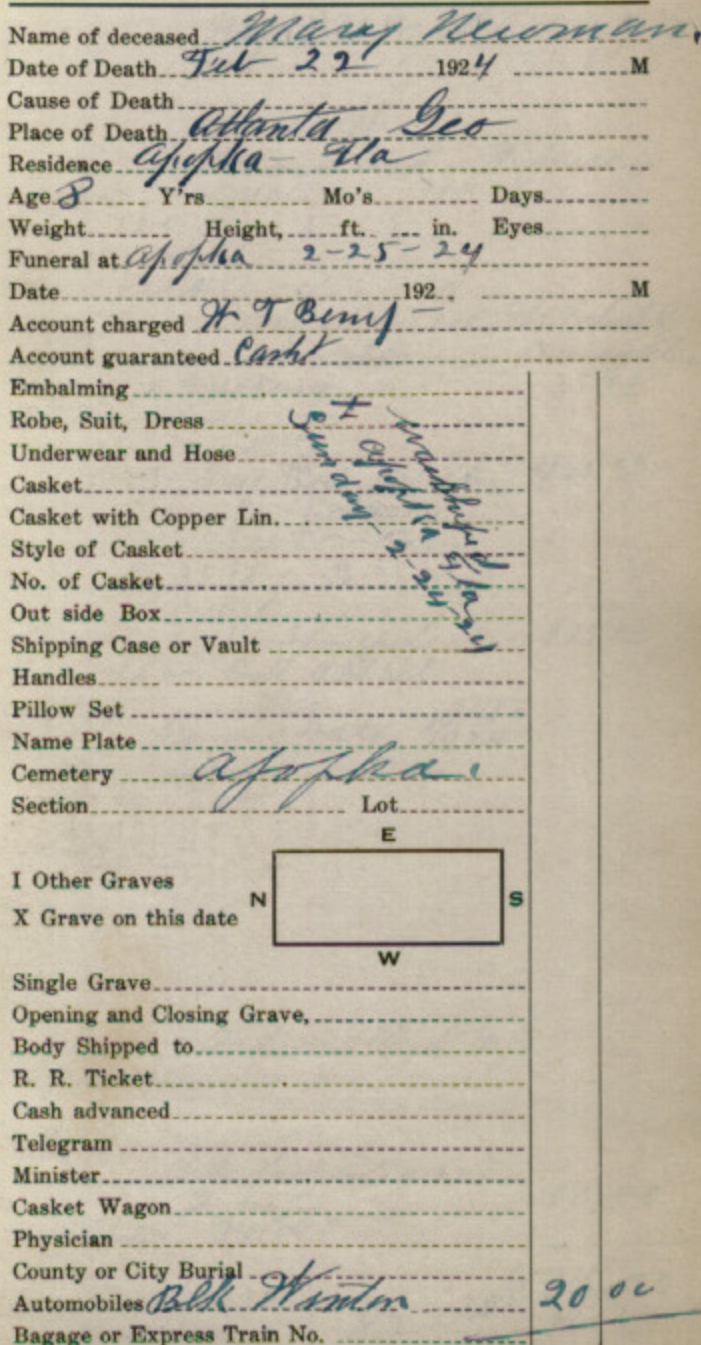 Name of deceased Mary Newman.
Date of Death Feb 22 1924 M
Cause of Death
Place of Death Atlanta Geo
Residence Apopka - Fla
Age 8 Y'rs Mo's Days
Weight Height, ft. in. Eyes
Funeral at Apopka 2-25-24
Date 192 M
Account charged H T
Account guaranteed Cash
Embalming
Robe, Suit, Dress
Underwear and Hose
Casket
Casket with Copper Lin.
Style of Casket
No. of Casket
Out side Box
Shipping Case or Vault
was shiped
to Apopka Fla
Sunday - 2-24-24
Handles
Pillow Set
Name Plate
Cemetery Apopka.
Section Lot
E
I Other Graves
N S
X Grave on this date
W
Single Grave
Opening and Closing Grave,
Body Shipped to
R. R. Ticket
Cash advanced
Telegram
Minister
Casket Wagon
Physician
County or City Burial
Automobiles Blk Winton 20 00
Bagage or Express Train No.